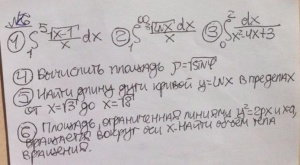 №6
① ∫₁⁵ √(x-1)/x dx ② ∫₁^∞ √(ln x)/x dx ③ ∫₀² dx/(x²-4x+3)
④ Вычислить площадь ρ=15sin4φ
⑤ Найти длину дуги кривой y=lnx в пределах
от x=√3 до x=√8
⑥ Площадь, ограниченная линиями y²=2px и x=a,
вращается вокруг оси x. Найти объём тела
вращения.